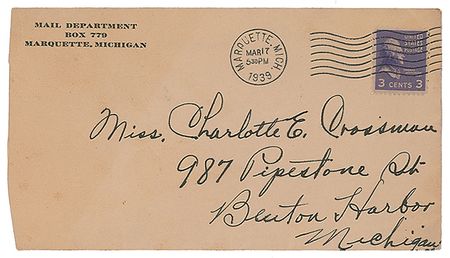 MAIL DEPARTMENT
BOX 779
MARQUETTE, MICHIGAN
MARQUETTE, MICH.
MAR 17
5 30 PM
1939
UNITED
STATES
POSTAGE
3 CENTS 3
Miss. Charlotte E. Crossman
987 Pipestone St.
Benton Harbor
Michigan